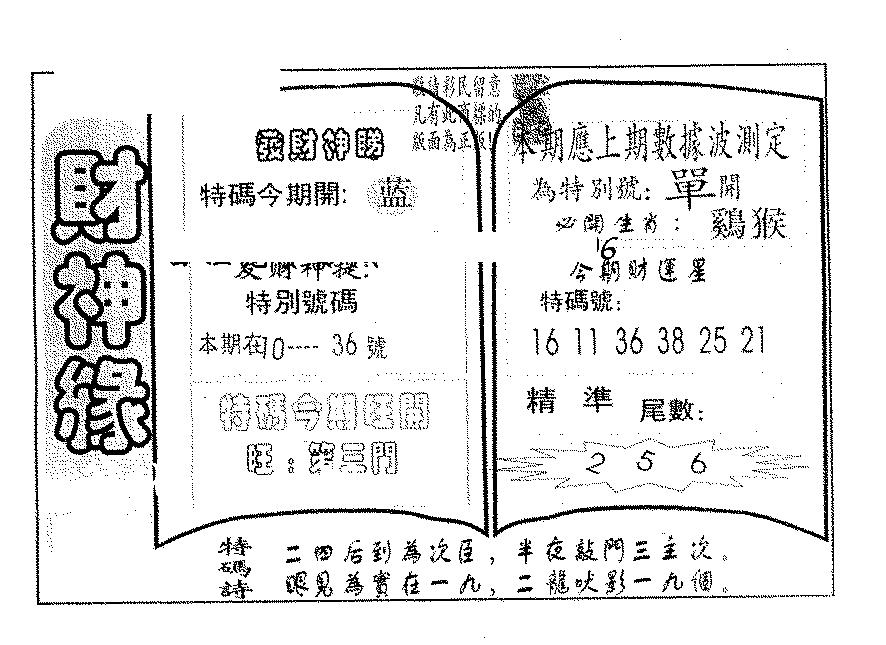 財神緣
敬請彩民留意
凡有此商標的
版面為正版!
發財神賜
特碼今期開: 蓝
特別號碼
本期在10---- 36 號
特碼今期旺開
旺:第三門
本期應上期數據波測定
為特別號: 單開
必開生肖: 鷄猴
16
今期財運星
特碼號:
16 11 36 38 25 21
精 準 尾數:
2 5 6
特碼詩
二四后到為次臣,半夜敲門三主次。
眼見為實在一九,二龍吠影一九個。